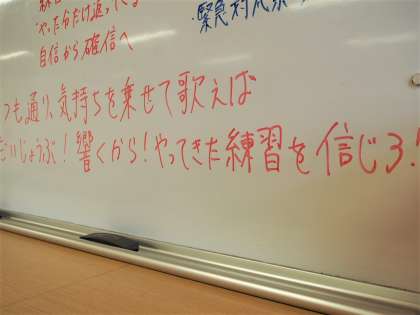 やった分だけ返ってくる
自信から確信へ
つも通り、気持ちを乗せて歌えば
だいじょうぶ！響くから！やってきた練習を信じろ！
緊急対応